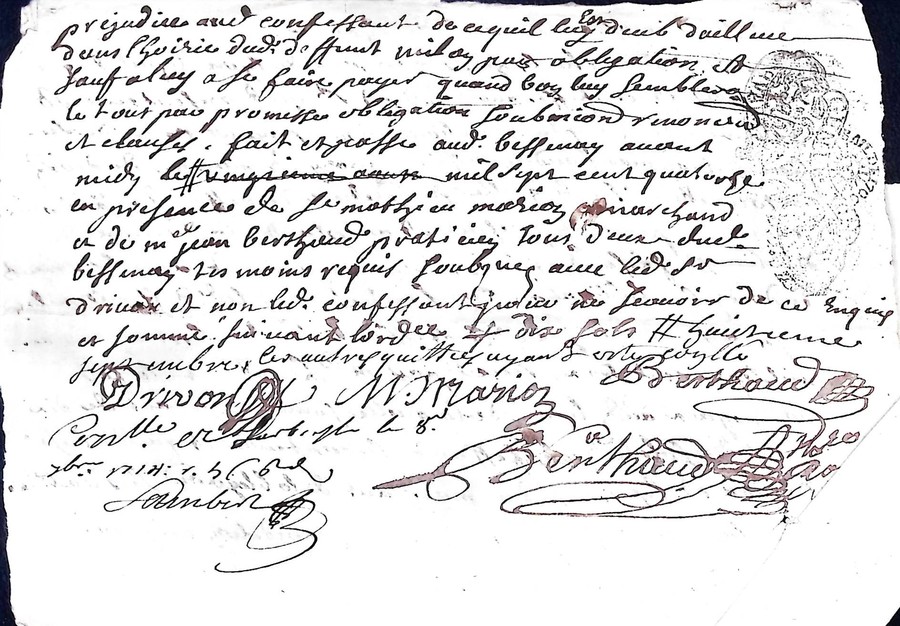 prejudice aud confessant de ce quil luy est deub dailleurs
dans lhoirie dud. deffunt milon par obligation, et
sauf a luy a se faire payer quand bon luy semblera
le tout par promesse obligation soubmiond renoncia
et clauses. fait et passé aud. bessenay avant
midy le # mil sept cent quatorze
en presence de Sr mathieu marion marchand
et de me jean berthaud praticien tous deux dud.
bessenay tesmoins requis soubsignez avec led. Sr
drivon et non led. confessant pour ne scavoir de ce enquis
et sommé suivant lordce et dix sols # huitieme
septembre, les autres quittes ayant
Drivon M Marion Berthaud
Conlle et a larbresle le 8e
7bre 1714: r.
Berthaud Nore
Ro